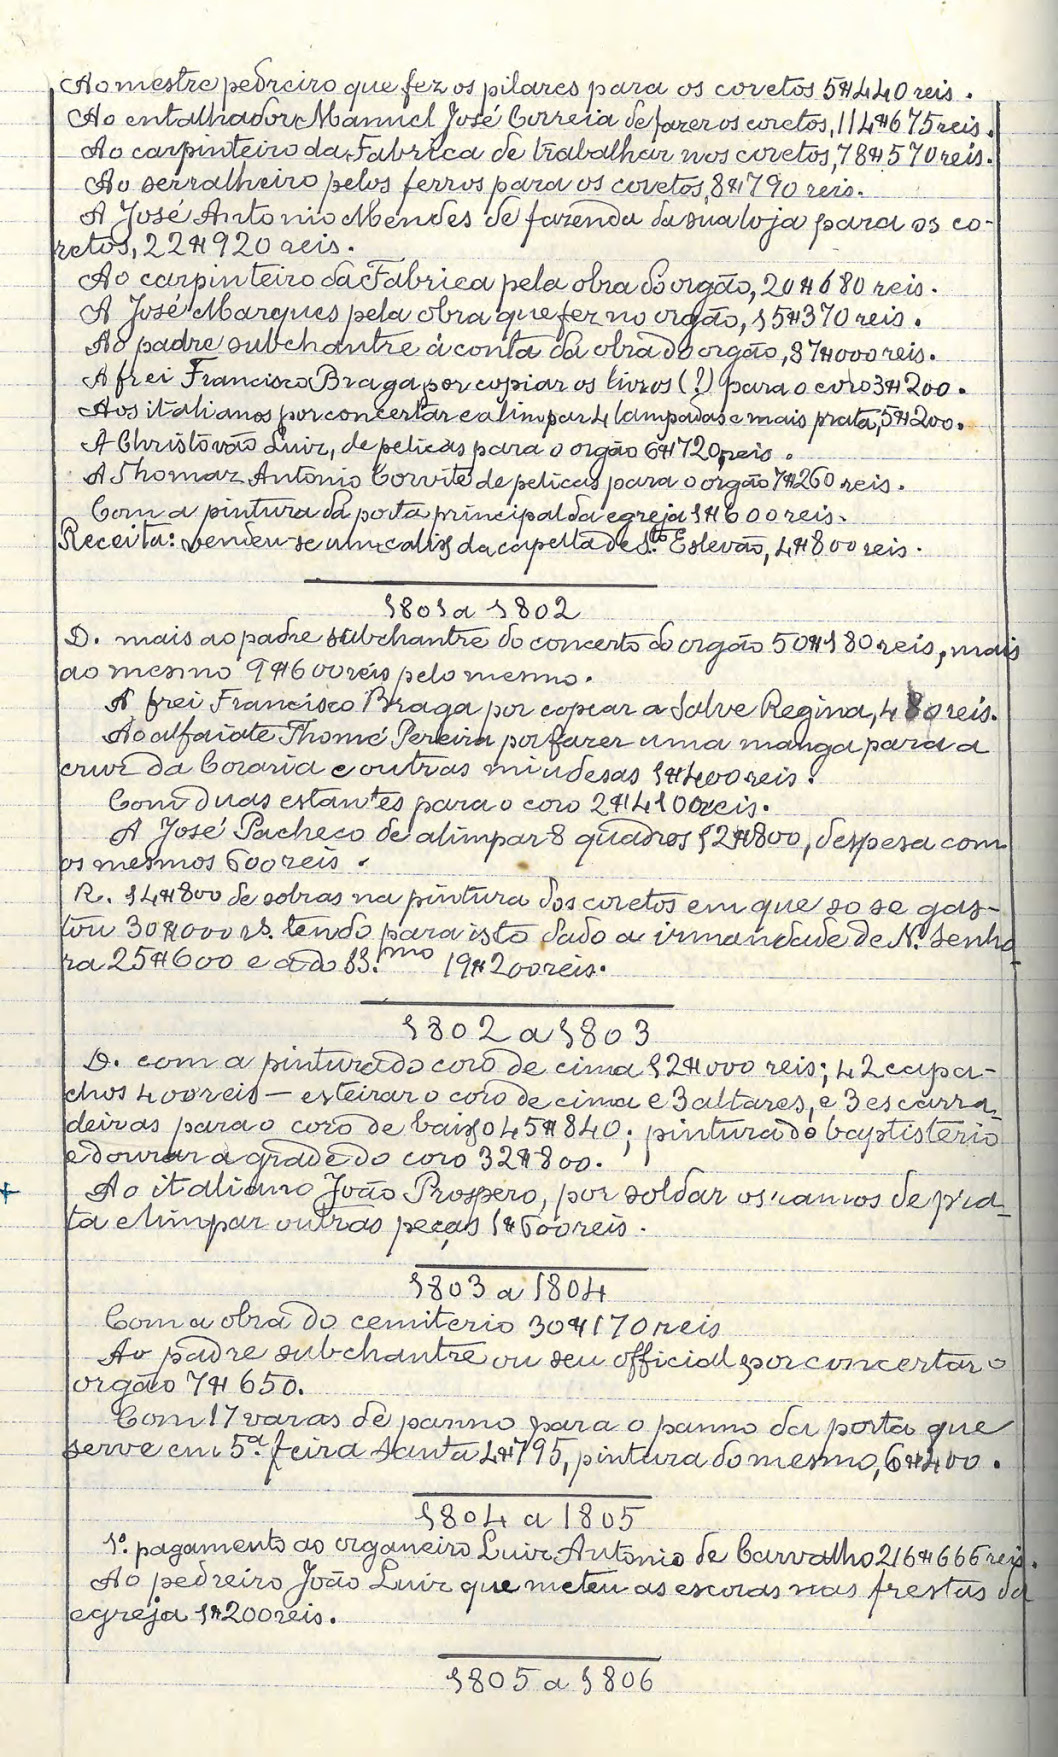 Ao mestre pedreiro que fez os pilares para os coretos 5$440 reis.
Ao entalhador Manuel José Correia de fazer os coretos, 114$675 reis.
Ao carpinteiro da Fabrica de trabalhar nos coretos, 78$570 reis.
Ao serralheiro pelos ferros para os coretos, 8$790 reis.
A José Antonio Mendes de fazenda da sua loja para os co-
retos, 22$920 reis.
Ao carpinteiro da Fabrica pela obra do orgão, 20$680 reis.
A José Marques pela obra que fez no orgão, 15$370 reis.
Ao padre subchantre á conta da obra do orgão, 87$000 reis.
A frei Francisco Braga por copiar os livros (?) para o coro 3$200.
Aos italianos por concertar e alimpar 4 lampadas e mais prata, 5$200.
A Christovão Luiz, de pelicas para o orgão 6$720 reis.
A Thomaz Antonio Corvite de pelicas para o orgão 7$260 reis.
Com a pintura da porta principal da egreja 1$600 reis.
Receita: vendeu-se um calix da capella de S.to Estevão, 4$800 reis.
1801 a 1802
D. mais ao padre subchantre do concerto do orgão 50$180 reis, mais
ao mesmo 9$600 reis pelo mesmo.
A frei Francisco Braga por copiar a Salve Regina, 480 reis.
Ao alfaiate Thomé Pereira por fazer uma manga para a
cruz da Coraria e outras miudesas 1$400 reis.
Com duas estantes para o coro 2$4100 reis.
A José Pacheco de alimpar 8 quadros 12$800, despesa com
os mesmos 600 reis.
R. 14$800 de sobras na pintura dos coretos em que so se gas-
tou 30$000 rs. tendo para isto dado a irmandade de N.ª Senho-
ra 25$600 e a do SS.mo 19$200 reis.
1802 a 1803
D. com a pintura do coro de cima 12$000 reis; 42 capa-
chos 400 reis — esteirar o coro de cima e 3 altares, e 3 escarra-
deiras para o coro de baixo 45$840; pintura do baptisterio
e dourar a grade do coro 32$800.
Ao italiano João Prospero, por soldar os ramos de pra-
ta e limpar outras peças 1$600 reis.
1803 a 1804
Com a obra do cemiterio 30$170 reis
Ao padre subchantre ou seu official por concertar o
orgão 7$650.
Com 17 varas de panno para o panno da porta que
serve em 5.ª feira santa 4$795, pintura do mesmo, 6$400.
1804 a 1805
1.º pagamento ao organeiro Luiz Antonio de Carvalho 216$666 reis.
Ao pedreiro João Luiz que meteu as escoras nas frestas da
egreja 1$200 reis.
1805 a 1806